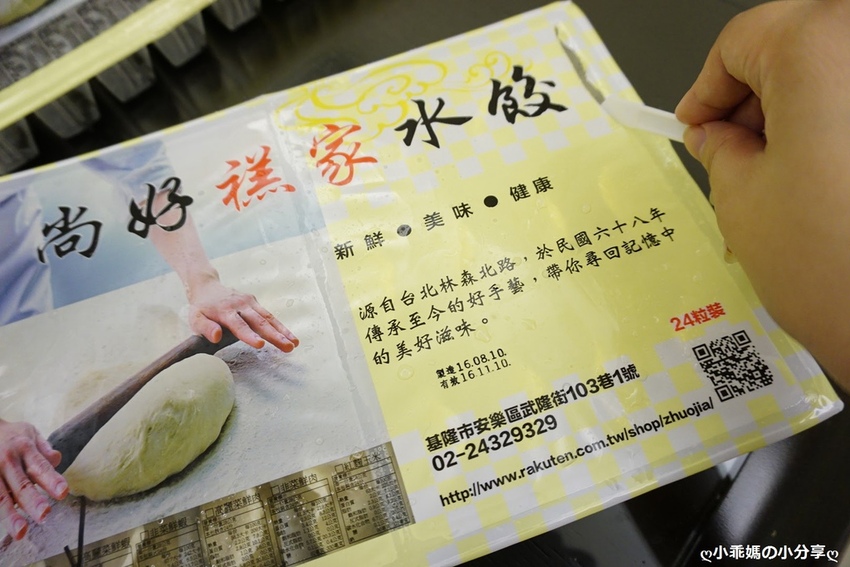 尚好糕家水餃
新鮮●美味●健康
源自台北林森北路，於民國六十八年
傳承至今的好手藝，帶你尋回記憶中
的美好滋味。
製造16.08.10.
有效16.11.10.
24粒裝
基隆市安樂區武隆街103巷1號
02-24329329
http://www.rakuten.com.tw/shop/zhuojia/
ღ小乖媽の小分享ღ